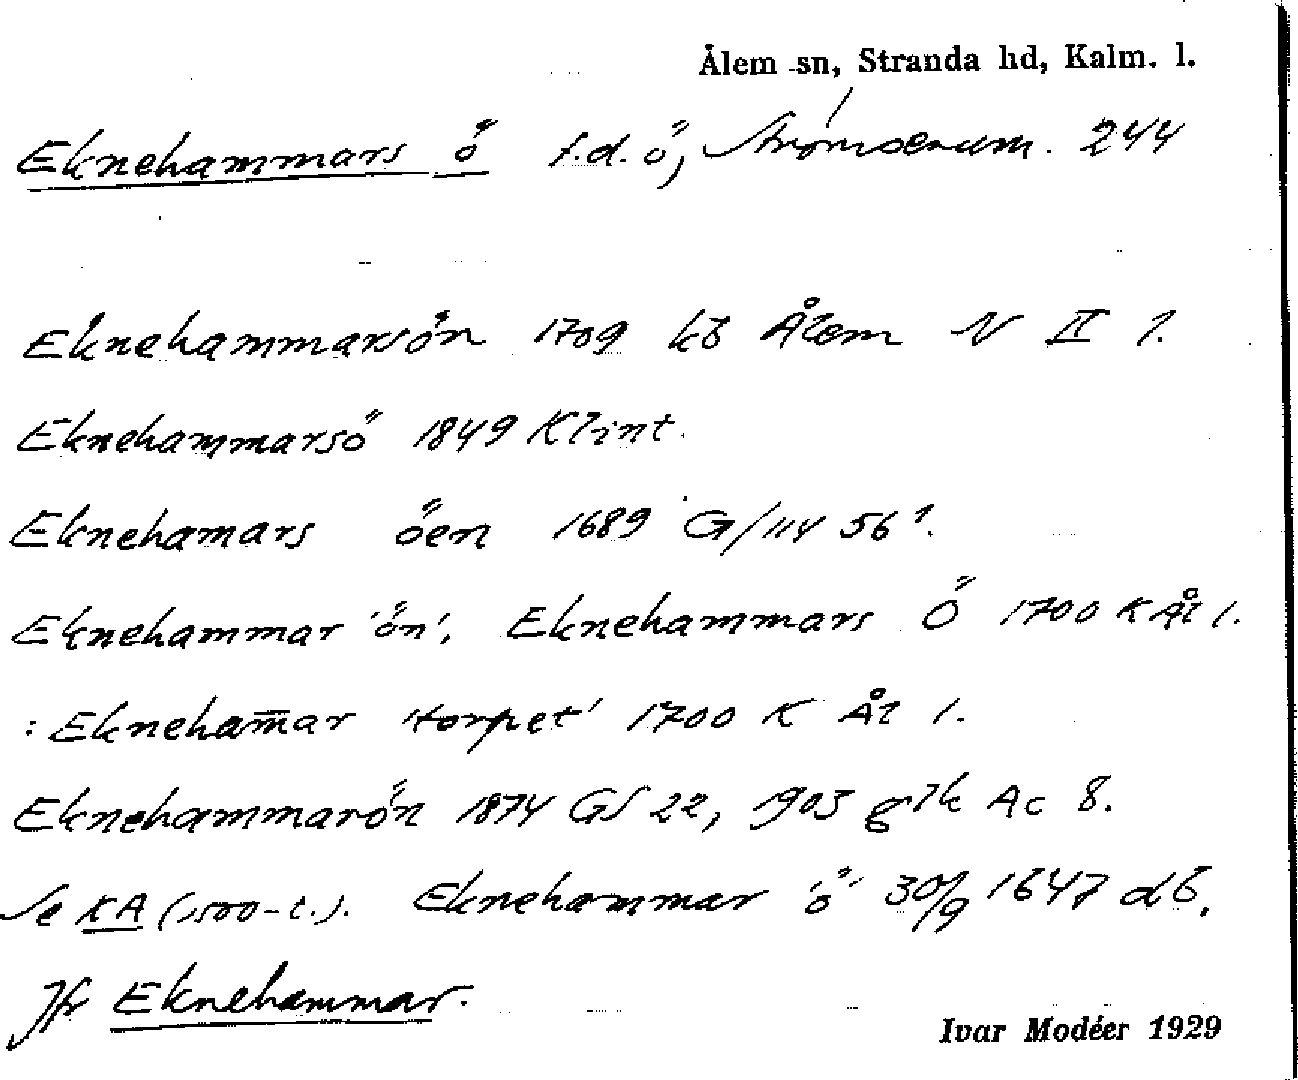 Ålem sn, Stranda hd, Kalm. l.
Eknehammars ö f.d. ö, Strömserum. 244
Eknehammarsön 1709 kb Ålem N II 1.
Eknehammarsö 1849 Klint.
Eknehamars öen 1689 G/114 56¹.
Eknehammar 'ön', Eknehammars Ö 1700 K Ål 1.
: Ekneham̅ar 'torpet' 1700 K Ål 1.
Eknehammarön 1874 GS 22, 1903 glk Ac 8.
Se KA (1500-t.). Eknehammar 'ö' 30/9 1647 db.
Jfr Eknehammar.
Ivar Modéer 1929